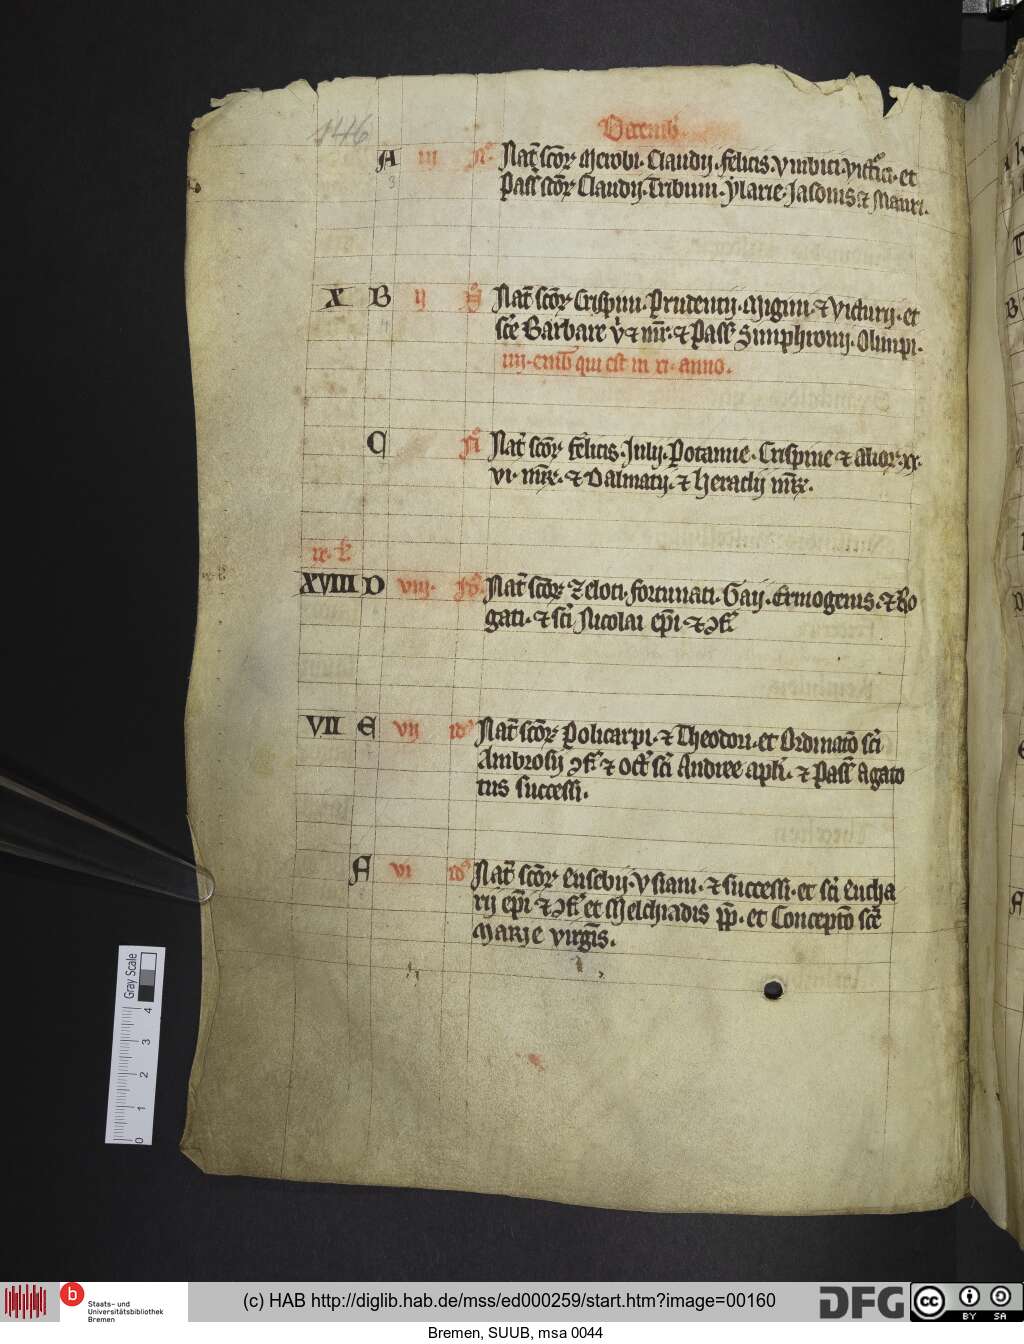 146
Decemb̄
A iij N̄ Nat̄ sc̄oꝝ Merobi. Claudij. felicis. et
3 Pass̄ sc̄oꝝ Claudij. Tribuni. ẏlarie. Jasonis ⁊ Mauri.
X B ij N̄ Nat̄ sc̄oꝝ Crispini. Prudentij. Migini. ⁊ Victurij. et
4 sc̄e Barbare v̄ ⁊ mr̄. ⁊ Pass̄ Simphronij. Olimpi.
iiij. emb̄ qui est in xi. anno.
C N̄ Nat̄ sc̄oꝝ felicis. Julij. Potamie. Crispine ⁊ alioꝝ. xx.
vi. mr̄ꝝ. ⁊ Dalmatij. ⁊ heraclij mr̄ꝝ.
XVIII D viij. Id̄. Nat̄ sc̄oꝝ Zeloti. fortunati. Gaij. Ermogenis. ⁊ Ro
gati. ⁊ sc̄i Nicolai ep̄i ⁊ ꝯf̄
VII E vij id̄ Nat̄ sc̄oꝝ Policarpi. ⁊ Theodori. et Ordinat̄o sc̄i
Ambrosij ꝯf̄ ⁊ oct̄ sc̄i Andree apl̄i. ⁊ Pass̄ Agato
nis successi.
F vi id̄ Nat̄ sc̄oꝝ Eusebij. Vsiani. ⁊ successi. et sc̄i Eucha
rij ep̄i ⁊ ꝯf̄ et Melchiadis pp̄. et Concept̄o sc̄e
Marie virgīs.
Gray Scale
0 1 2 3 4
b
Staats- und
Universitätsbibliothek
Bremen
(c) HAB http://diglib.hab.de/mss/ed000259/start.htm?image=00160
DFG
cc BY SA
Bremen, SUUB, msa 0044